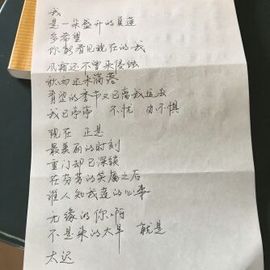 我
是一朵盛开的夏莲
多希望
你能看见现在的我
风霜还不曾来侵蚀
秋雨还未滴落
青涩的季节又已离我远去
我已亭亭 不忧 亦不惧
现在 正是
最美丽的时刻
重门却已深锁
在芬芳的笑靥之后
谁人知我莲的心事
无缘的你啊
不是来的太早 就是
太迟